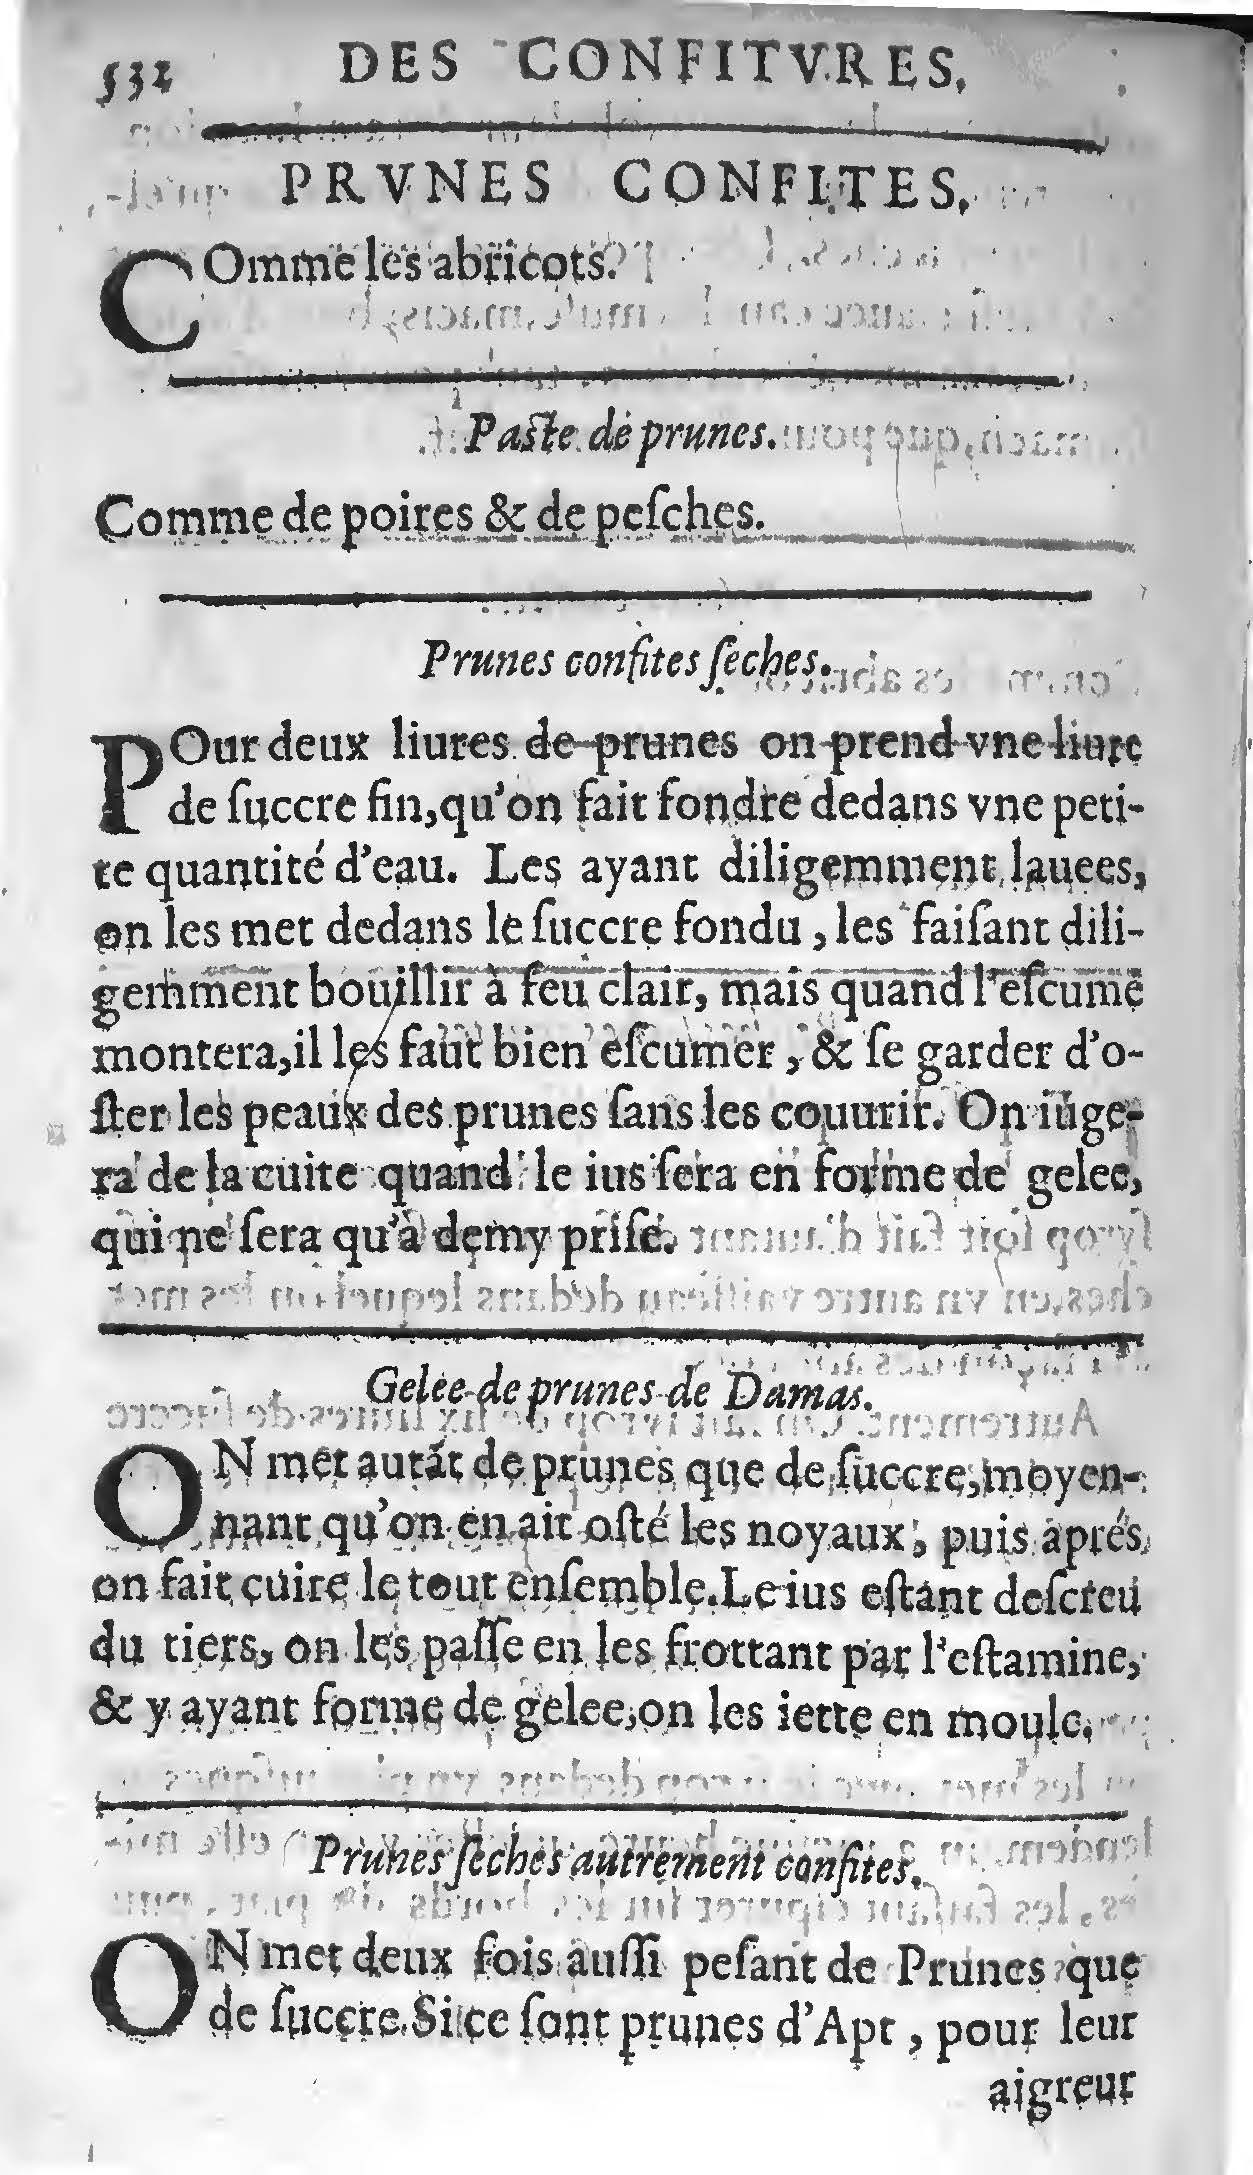 532 DES CONFITVRES,
PRVNES CONFITES,
COmme les abricots.
Paſte de prunes.
Comme de poires & de peſches.
Prunes confites ſeches.
POur deux liures de prunes on prend vne liure
de ſuccre fin, qu'on fait fondre dedans vne peti-
te quantité d'eau. Les ayant diligemment lauees,
on les met dedans le ſuccre fondu, les faiſant dili-
gemment bouillir à feu clair, mais quand l'eſcume
montera, il les faut bien eſcumer, & ſe garder d'o-
ſter les peaux des prunes ſans les couurir. On iuge-
ra de la cuite quand le ius ſera en forme de gelee,
qui ne ſera qu'à demy priſe.
Gelee de prunes de Damas.
ON met autãt de prunes que de ſuccre, moyen-
nant qu'on en ait oſté les noyaux, puis aprés
on fait cuire le tout enſemble. Le ius eſtant deſcreu
du tiers, on les paſſe en les frottant par l'eſtamine,
& y ayant forme de gelee, on les iette en moule.
Prunes ſeches autrement confites.
ON met deux fois auſſi peſant de Prunes que
de ſuccre. Si ce ſont prunes d'Apt, pour leur
aigreur